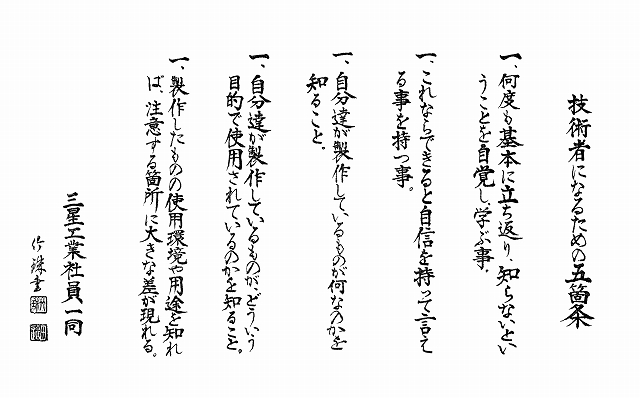 技術者になるための五箇条
一、何度も基本に立ち返り、知らないとい
うことを自覚し、学ぶ事。
一、これならできると自信を持って言え
る事を持つ事。
一、自分達が製作しているものが何なのかを
知ること。
一、自分達が製作しているものが、どういう
目的で使用されているのかを知ること。
一、製作したものの使用環境や用途を知れ
ば、注意する箇所に大きな差が現れる。
三星工業社員一同
竹珠書